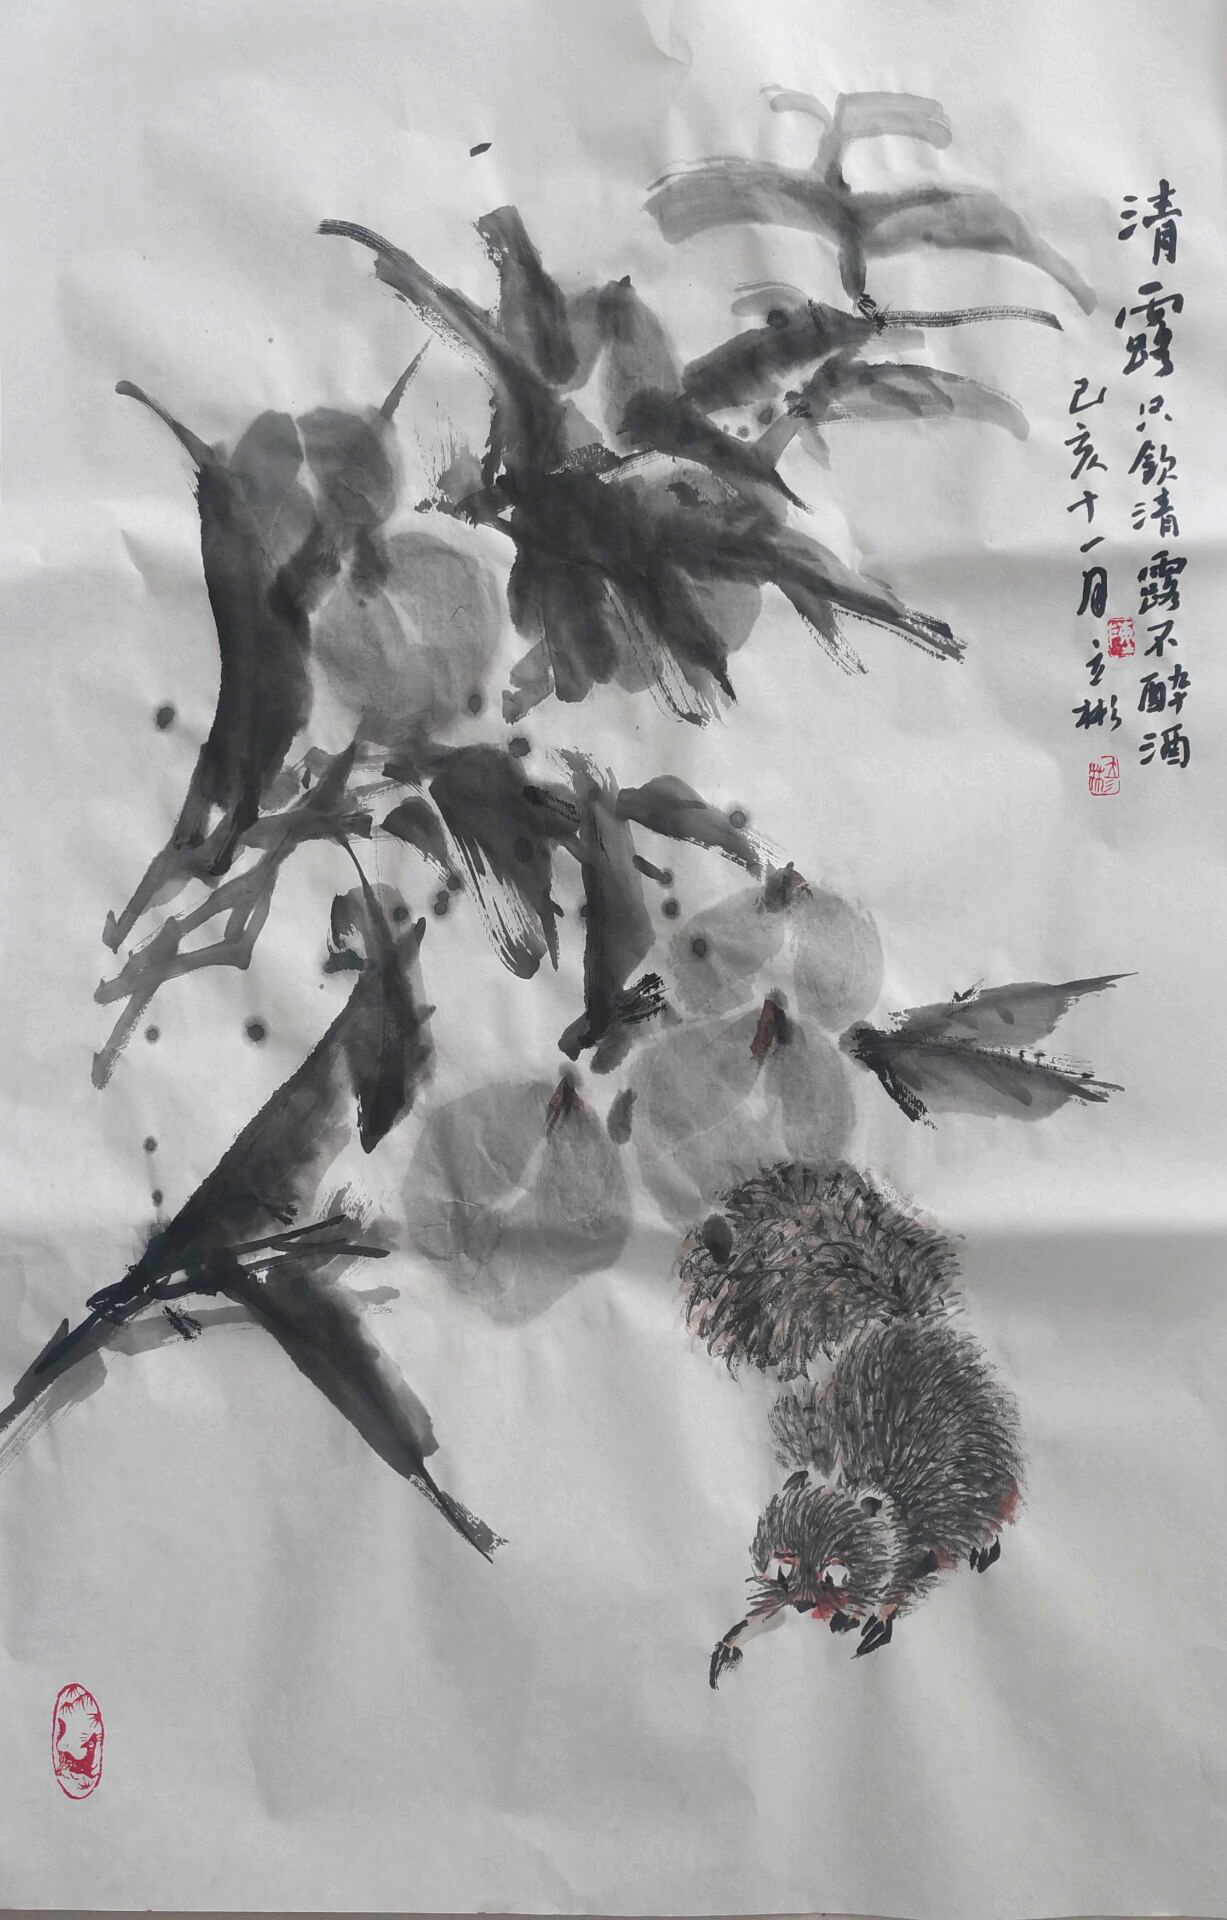 清露只飲清露不醉酒
己亥十一月立彬